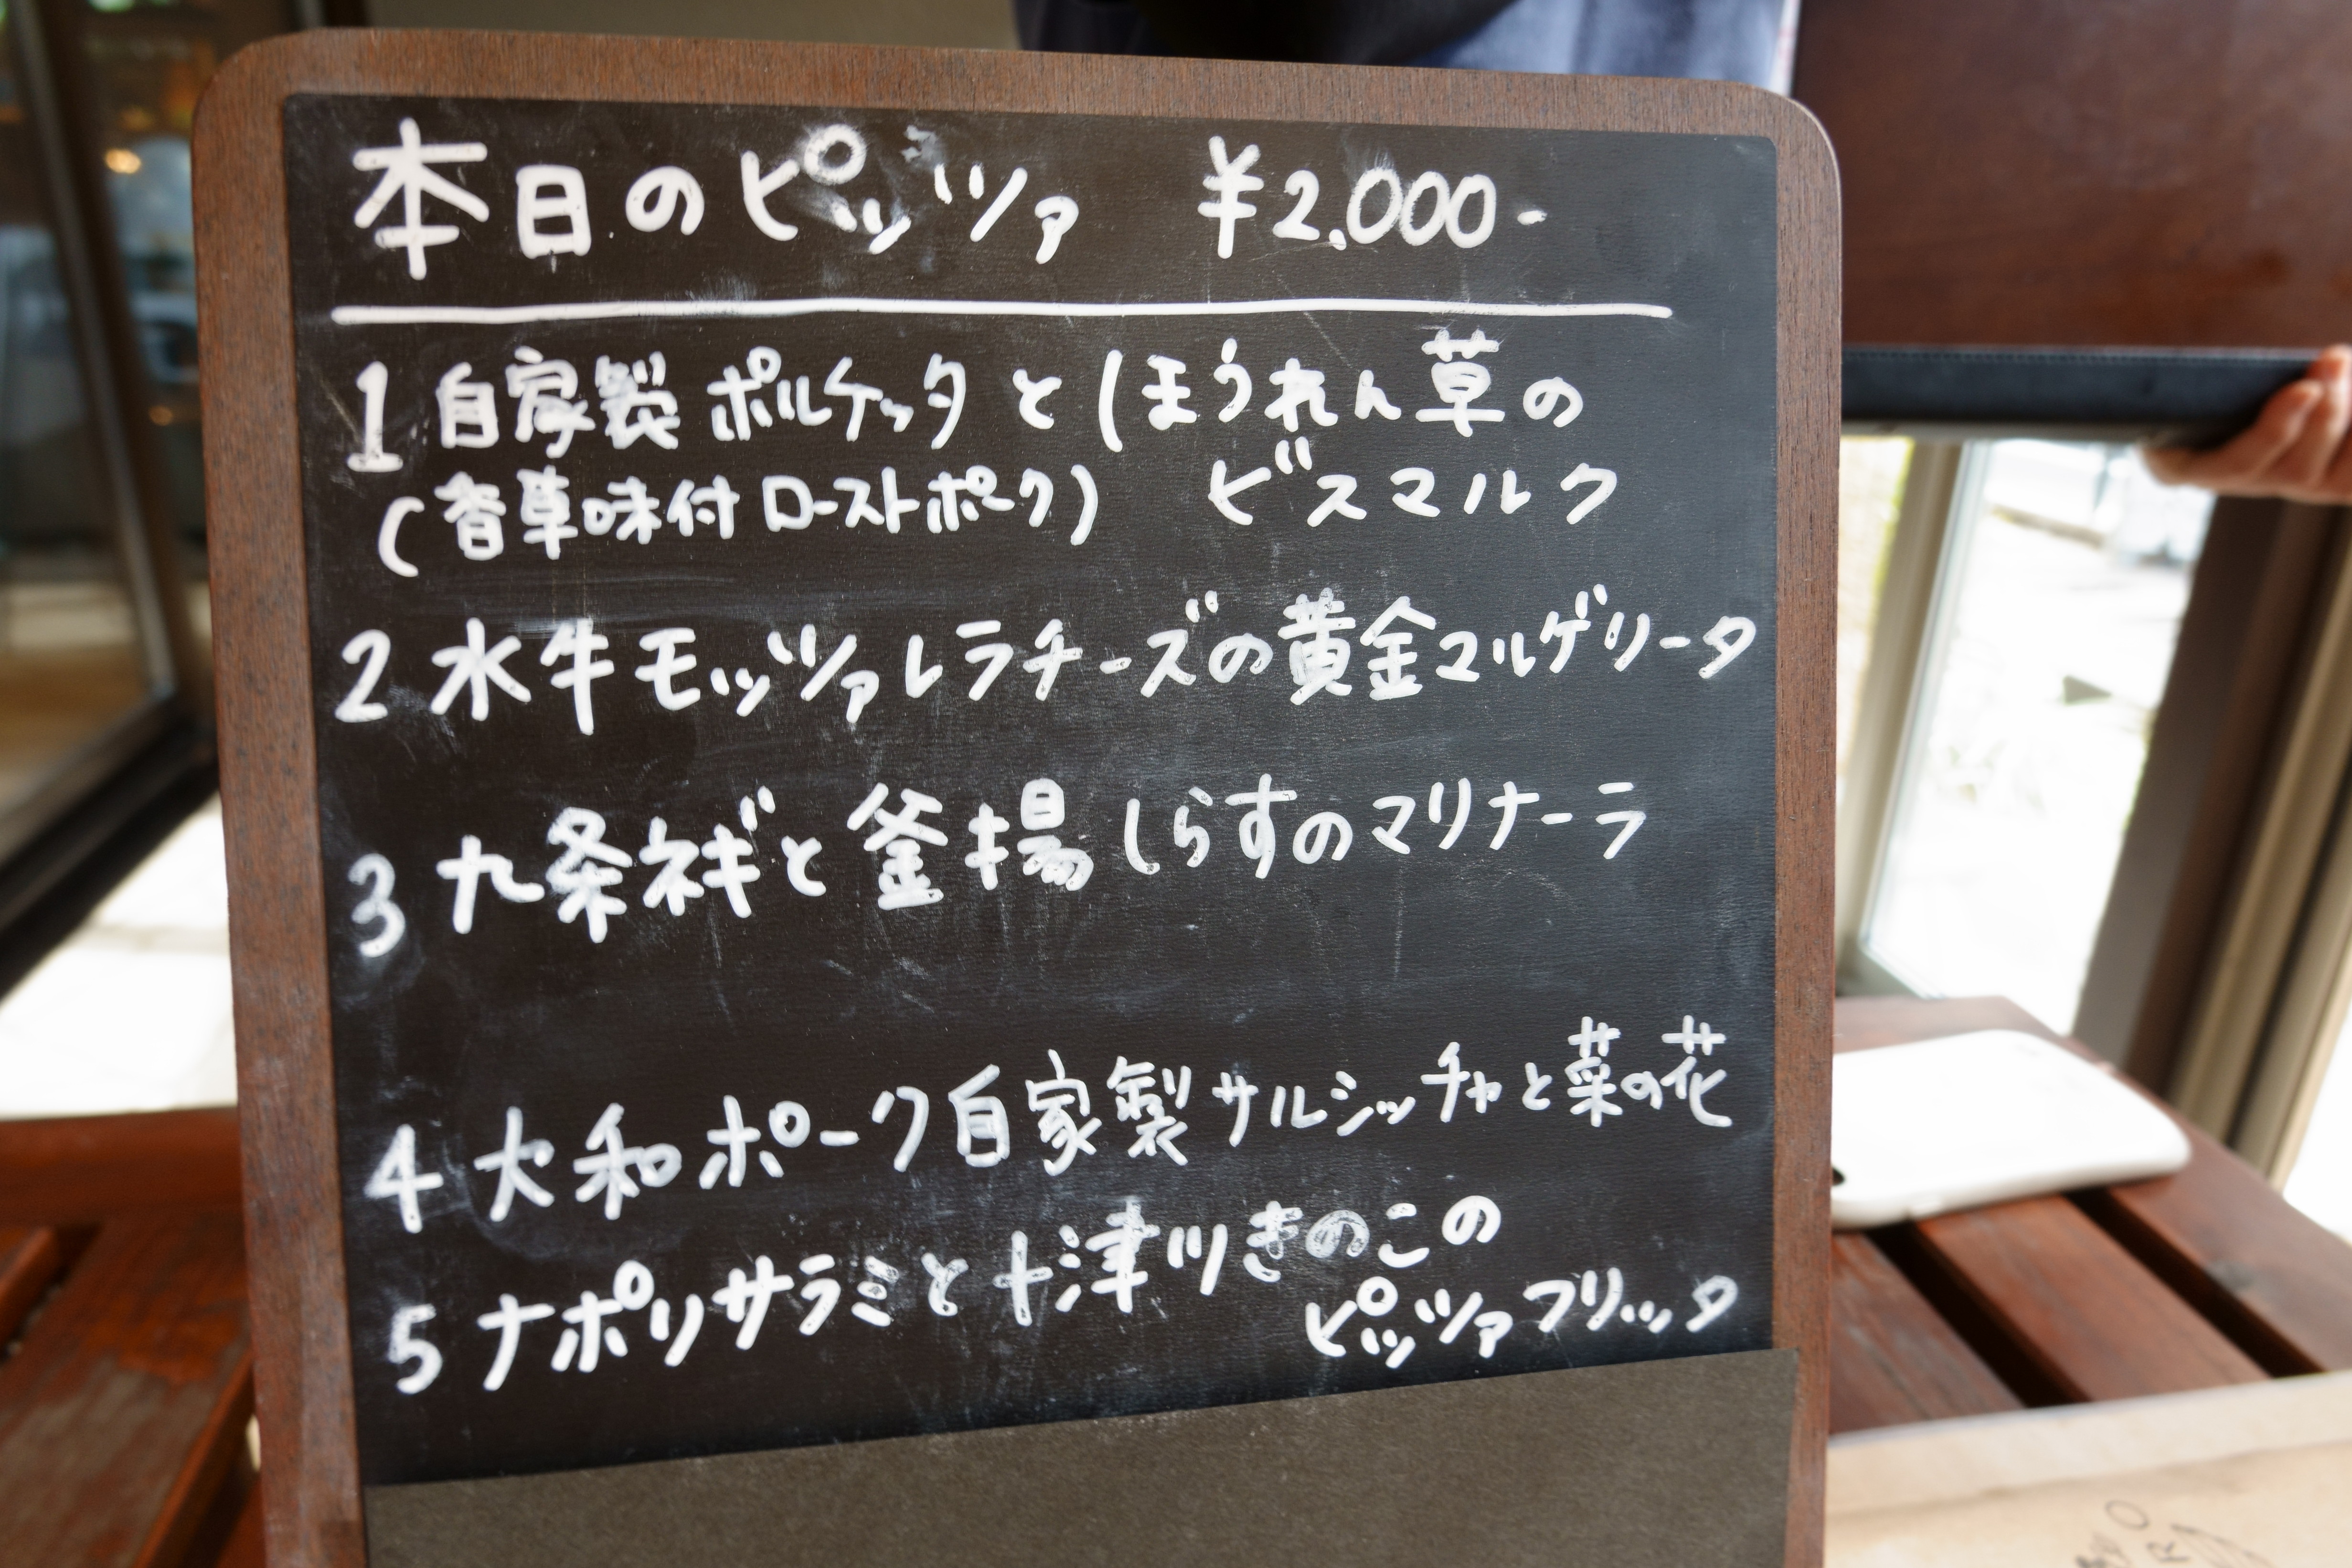 本日のピッツァ ¥2,000-
1 自家製 ポルケッタ と ほうれん草の
(香草味付ローストポーク) ビスマルク
2 水牛モッツァレラチーズの黄金マルゲリータ
3 九条ネギと釜揚しらすのマリナーラ
4 大和ポーク自家製サルシッチャと菜の花
5 ナポリサラミと十津川きのこの
ピッツァフリッタ